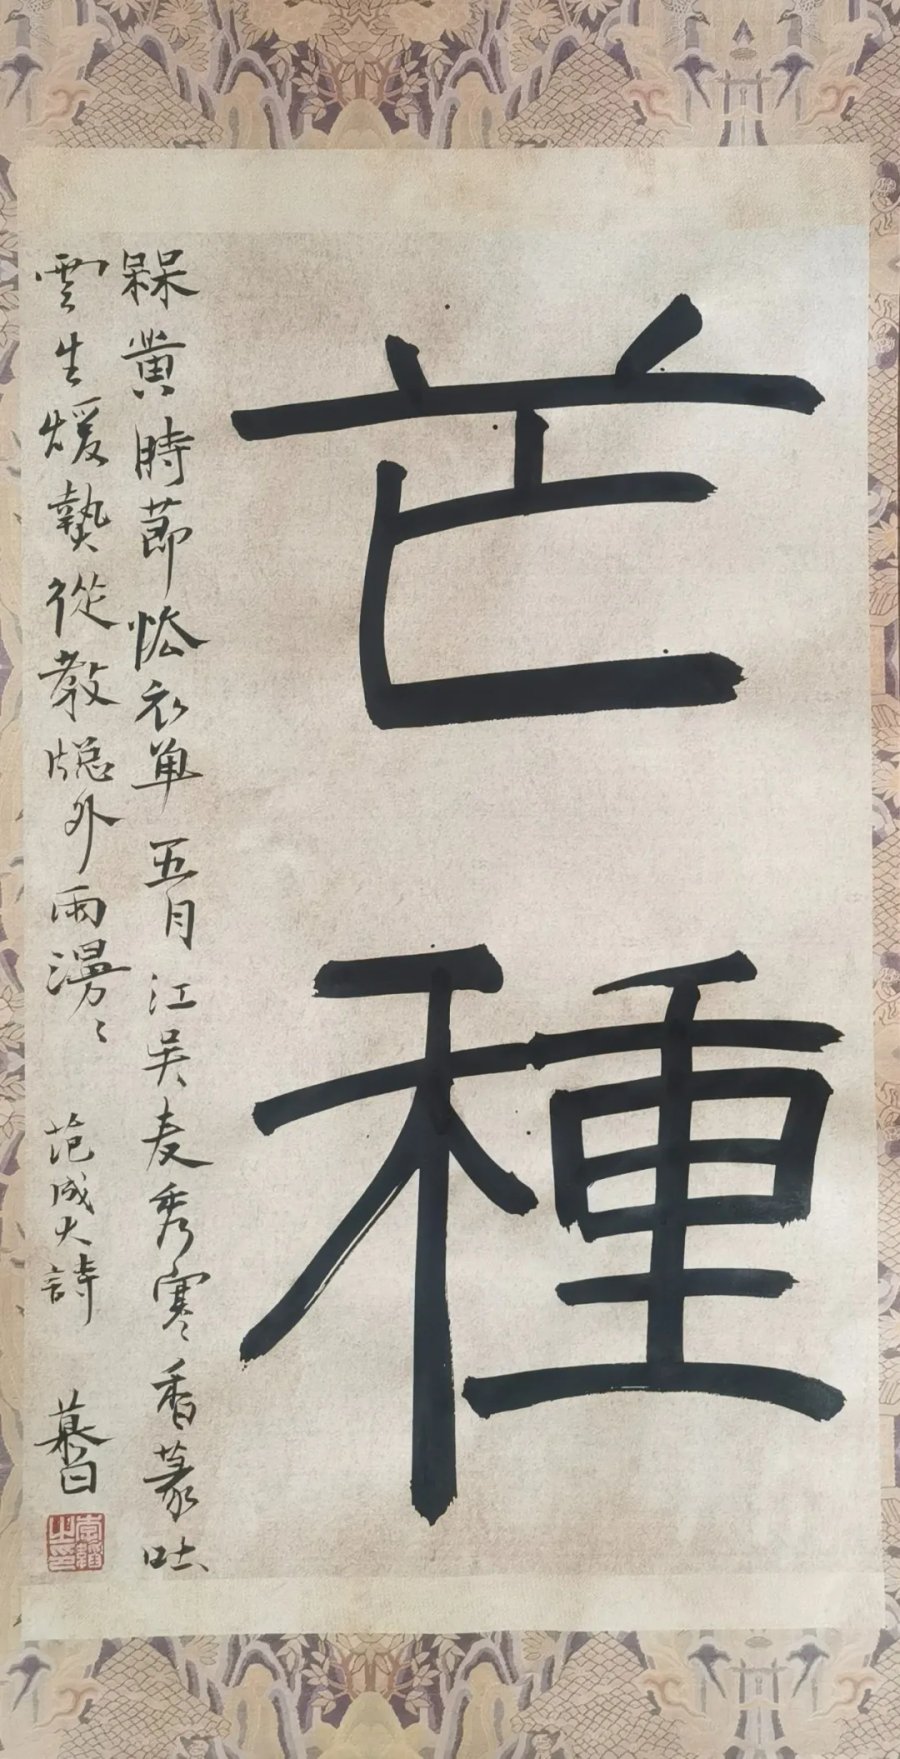 芒種
槑黄時節怯衣单五月江吴麦秀寒香篆吐
雲生煖熱從教牕外雨漫〻 范成大詩 慕白